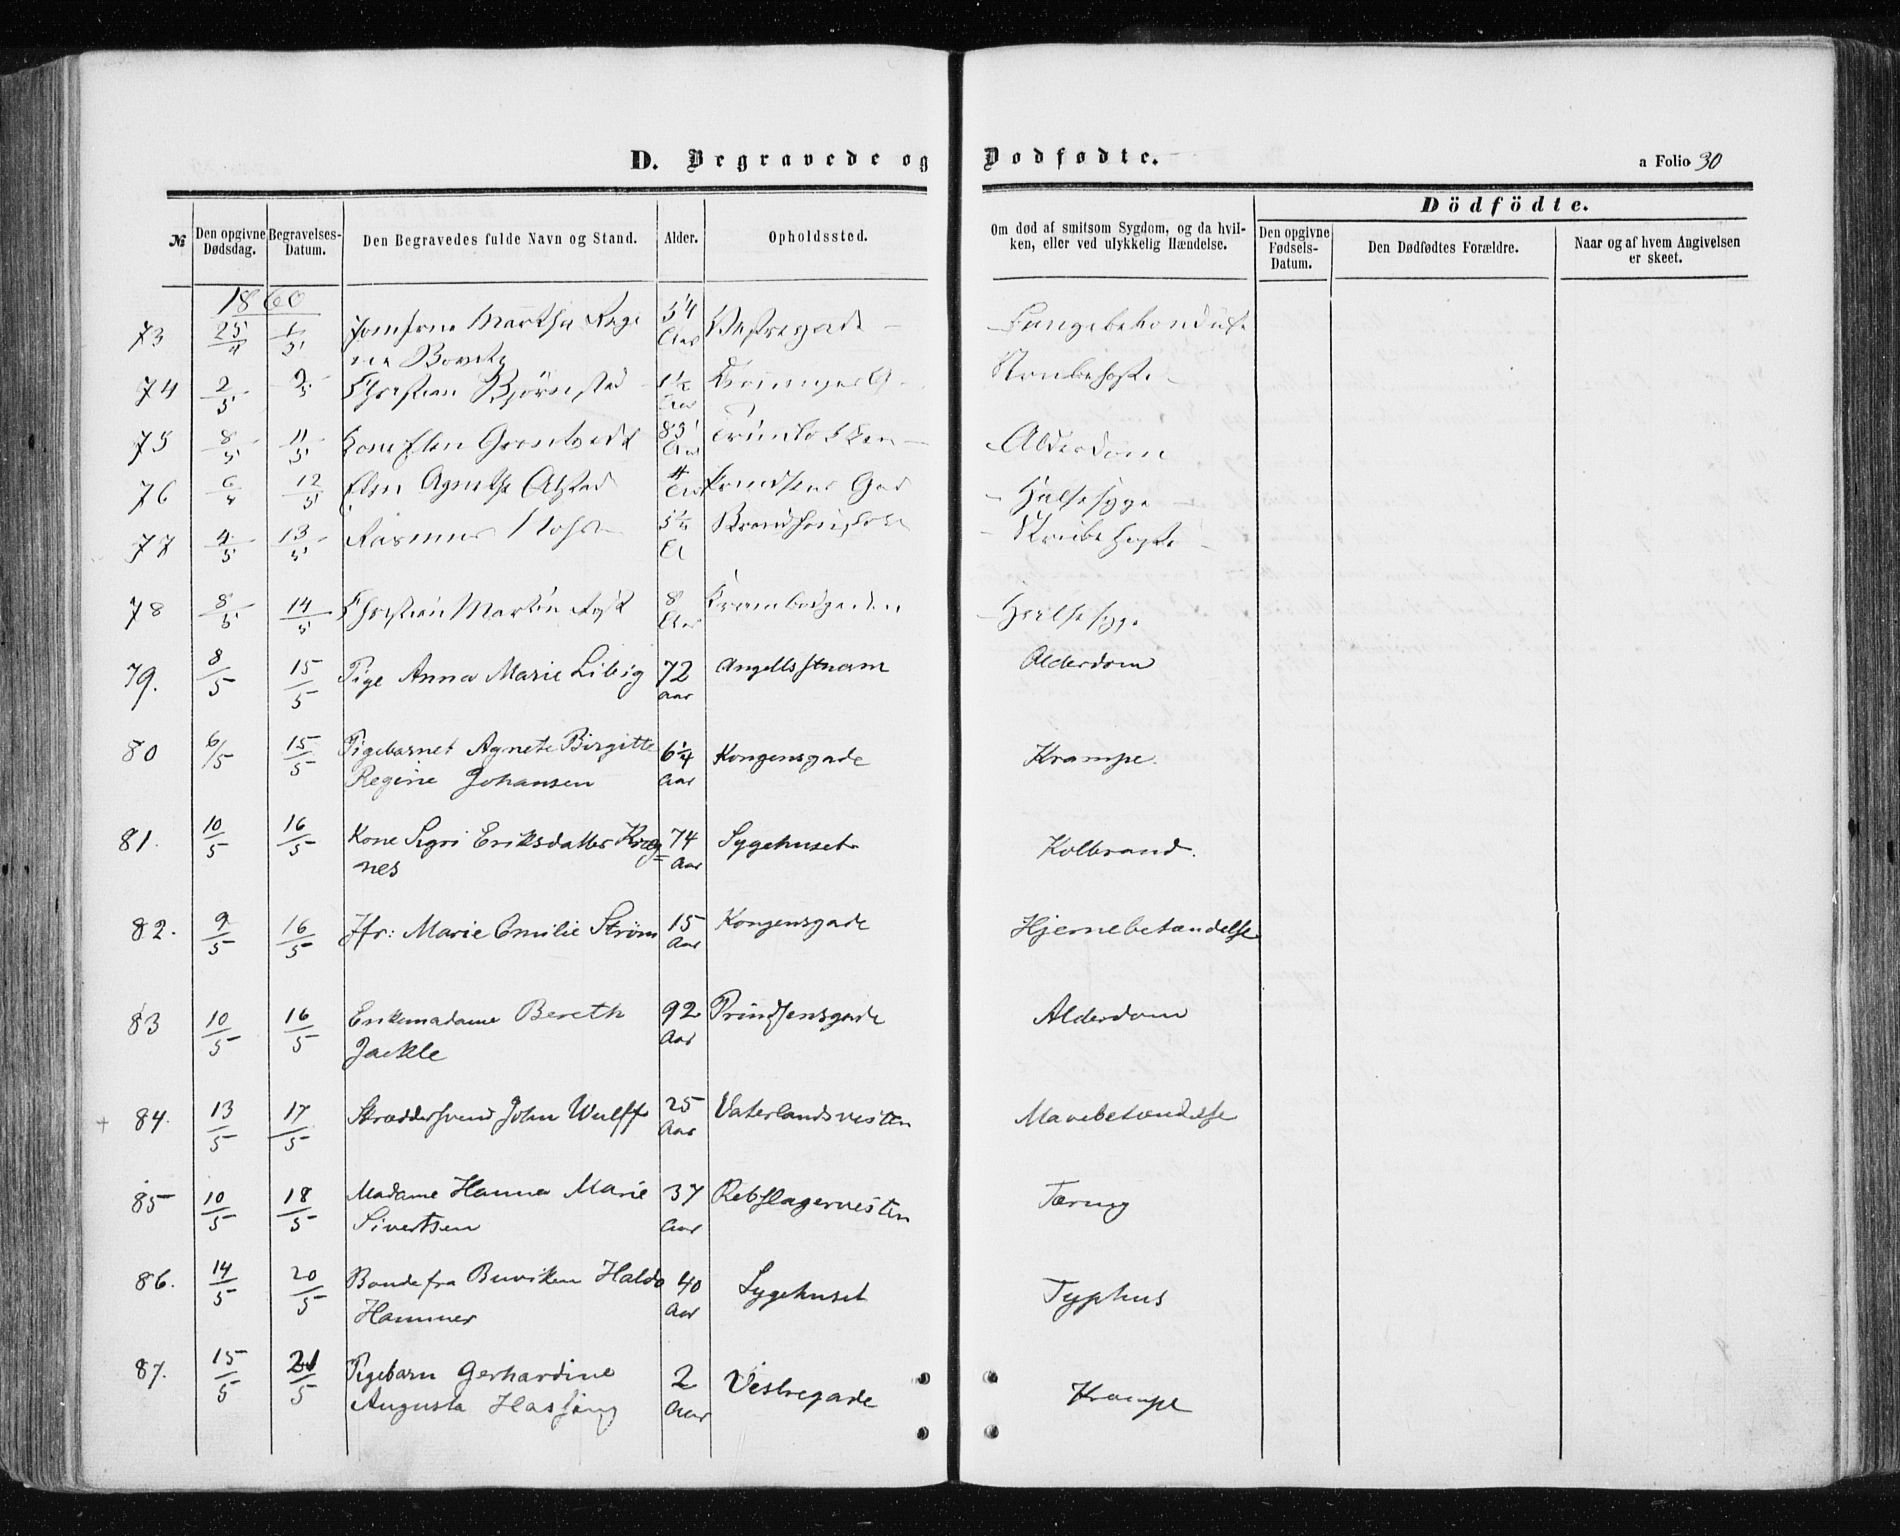 D. Begravede og Dodfødte.
a Folio 30
Dödfödte.
№
Den opgivne Dødsdag.
Begravelses-Datum.
Den Begravedes fulde Navn og Stand.
Alder.
Opholdssted.
Om død af smitsom Sygdom, og da hvil-
ken, eller ved ulykkelig Hændelse.
Den opgivne Fødsels-Datum.
Den Dødfødtes Forældre.
Naar og af hvem Angivelsen er skeet.
1860
73 25/4 1/5 Jomfrue Martha 54 Aar Vestregade
74 2/5 Christian Bjørnstad 1½ Aar Strubehoste
75 8/5 11/5 Kone Elen 85 Aar Alderdom
76 12/5 Elen Agnethe 4 Aar Halsesyge
77 4/5 13/5 Rasmus Strubehoste
78 8/5 14/5 Christian Martin 8 Aar Halsesyge
79. 8/5 15/5 Pige Anna Marie Libig 72 Aar Angells Alderdom
80 6/5 15/5 Pigebarnet Agnete Birgitte 6¼ Aar Kongensgade Krampe.
Regine Johansen
81. 10/5 16/5 Kone Sigri Eriksdatter Kreg= 74 Aar Sygehuset Kolbrand.
nes
82. 9/5 16/5 Jfr: Marie Emilie Strøm 15 Aar Kongensgade Hjernebetændelse
83 10/5 16/5 Enkemadame Bereth 92 Aar Prindsensgade Alderdom
Jackle
84. 13/5 17/5 Skræddersvend John Wulff 25 Aar Vaterlandsveiten Mavebetændelse
85 10/5 18/5 Madame Hanna Marie 37 Aar Rebslagerveiten Tæring
Sivertsen
86. 14/5 20/5 Bonde fra Buviken Haldo 40 Aar Sygehuset Typhus
Hammer
87. 15/5 21/5 Pigebarn Gerhardine 2 Aar Vestregade Krampe
Augusta Hassing